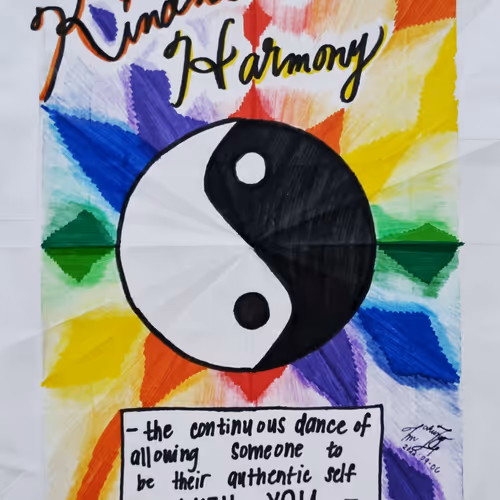 Kindn
Harmony
- the continuous dance of
allowing someone to
be their authentic self
YOU -